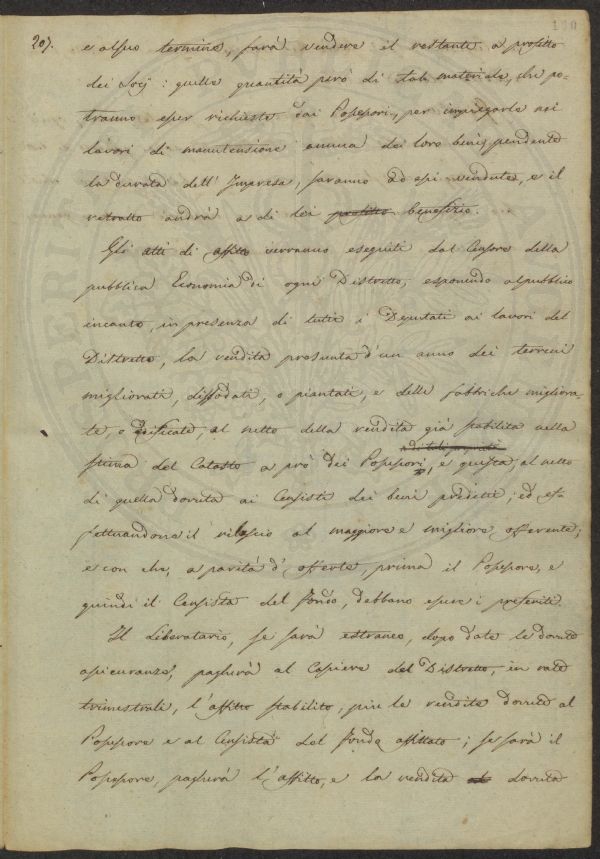 207. 190
e al suo termine, farà vendere il restante a profitto
dei Socj: quelle quantità però di tali materiale, che po-
tranno esser richieste dai Possessori, per impiegarle nei
lavori di manutensione annua dei loro beni, pendente
la durata dell'Impresa, saranno ad essi vendute, e il
retratto andrà a di lei profitto benefizio.
Gli atti di affitto verranno eseguiti dal Censore della
pubblica Economia di ogni Distretto, esponendo al pubblico
incanto, in presenza di tutti i Deputati ai lavori del
Distretto, la rendita presunta d'un anno dei terreni
migliorati, dissodati, o piantati, e delle fabbriche migliora-
te, o edificate, al netto della rendita già stabilita nella
a di tali proprietà
stima del Catasto a prò dei Possessori, e questa, al netto
di quella dovuta ai Censisti dei beni predetti; ed ef-
fettuandone il rilascio al maggiore e migliore offerente;
e con che, a parità d'offerte, prima il Possessore, e
quindi il Censista del fondo, debbano essere i preferiti.
Il Liberatario, se sarà estraneo, dopo date le dovute
assicuranze, pagherà al Cassiere del Distretto, in rate
trimestrali, l'affitto stabilito, più le rendite dovute al
Possessore e al Censista del fondo affittato; se sarà il
Possessore, pagherà l'affitto, e la rendita dovuta